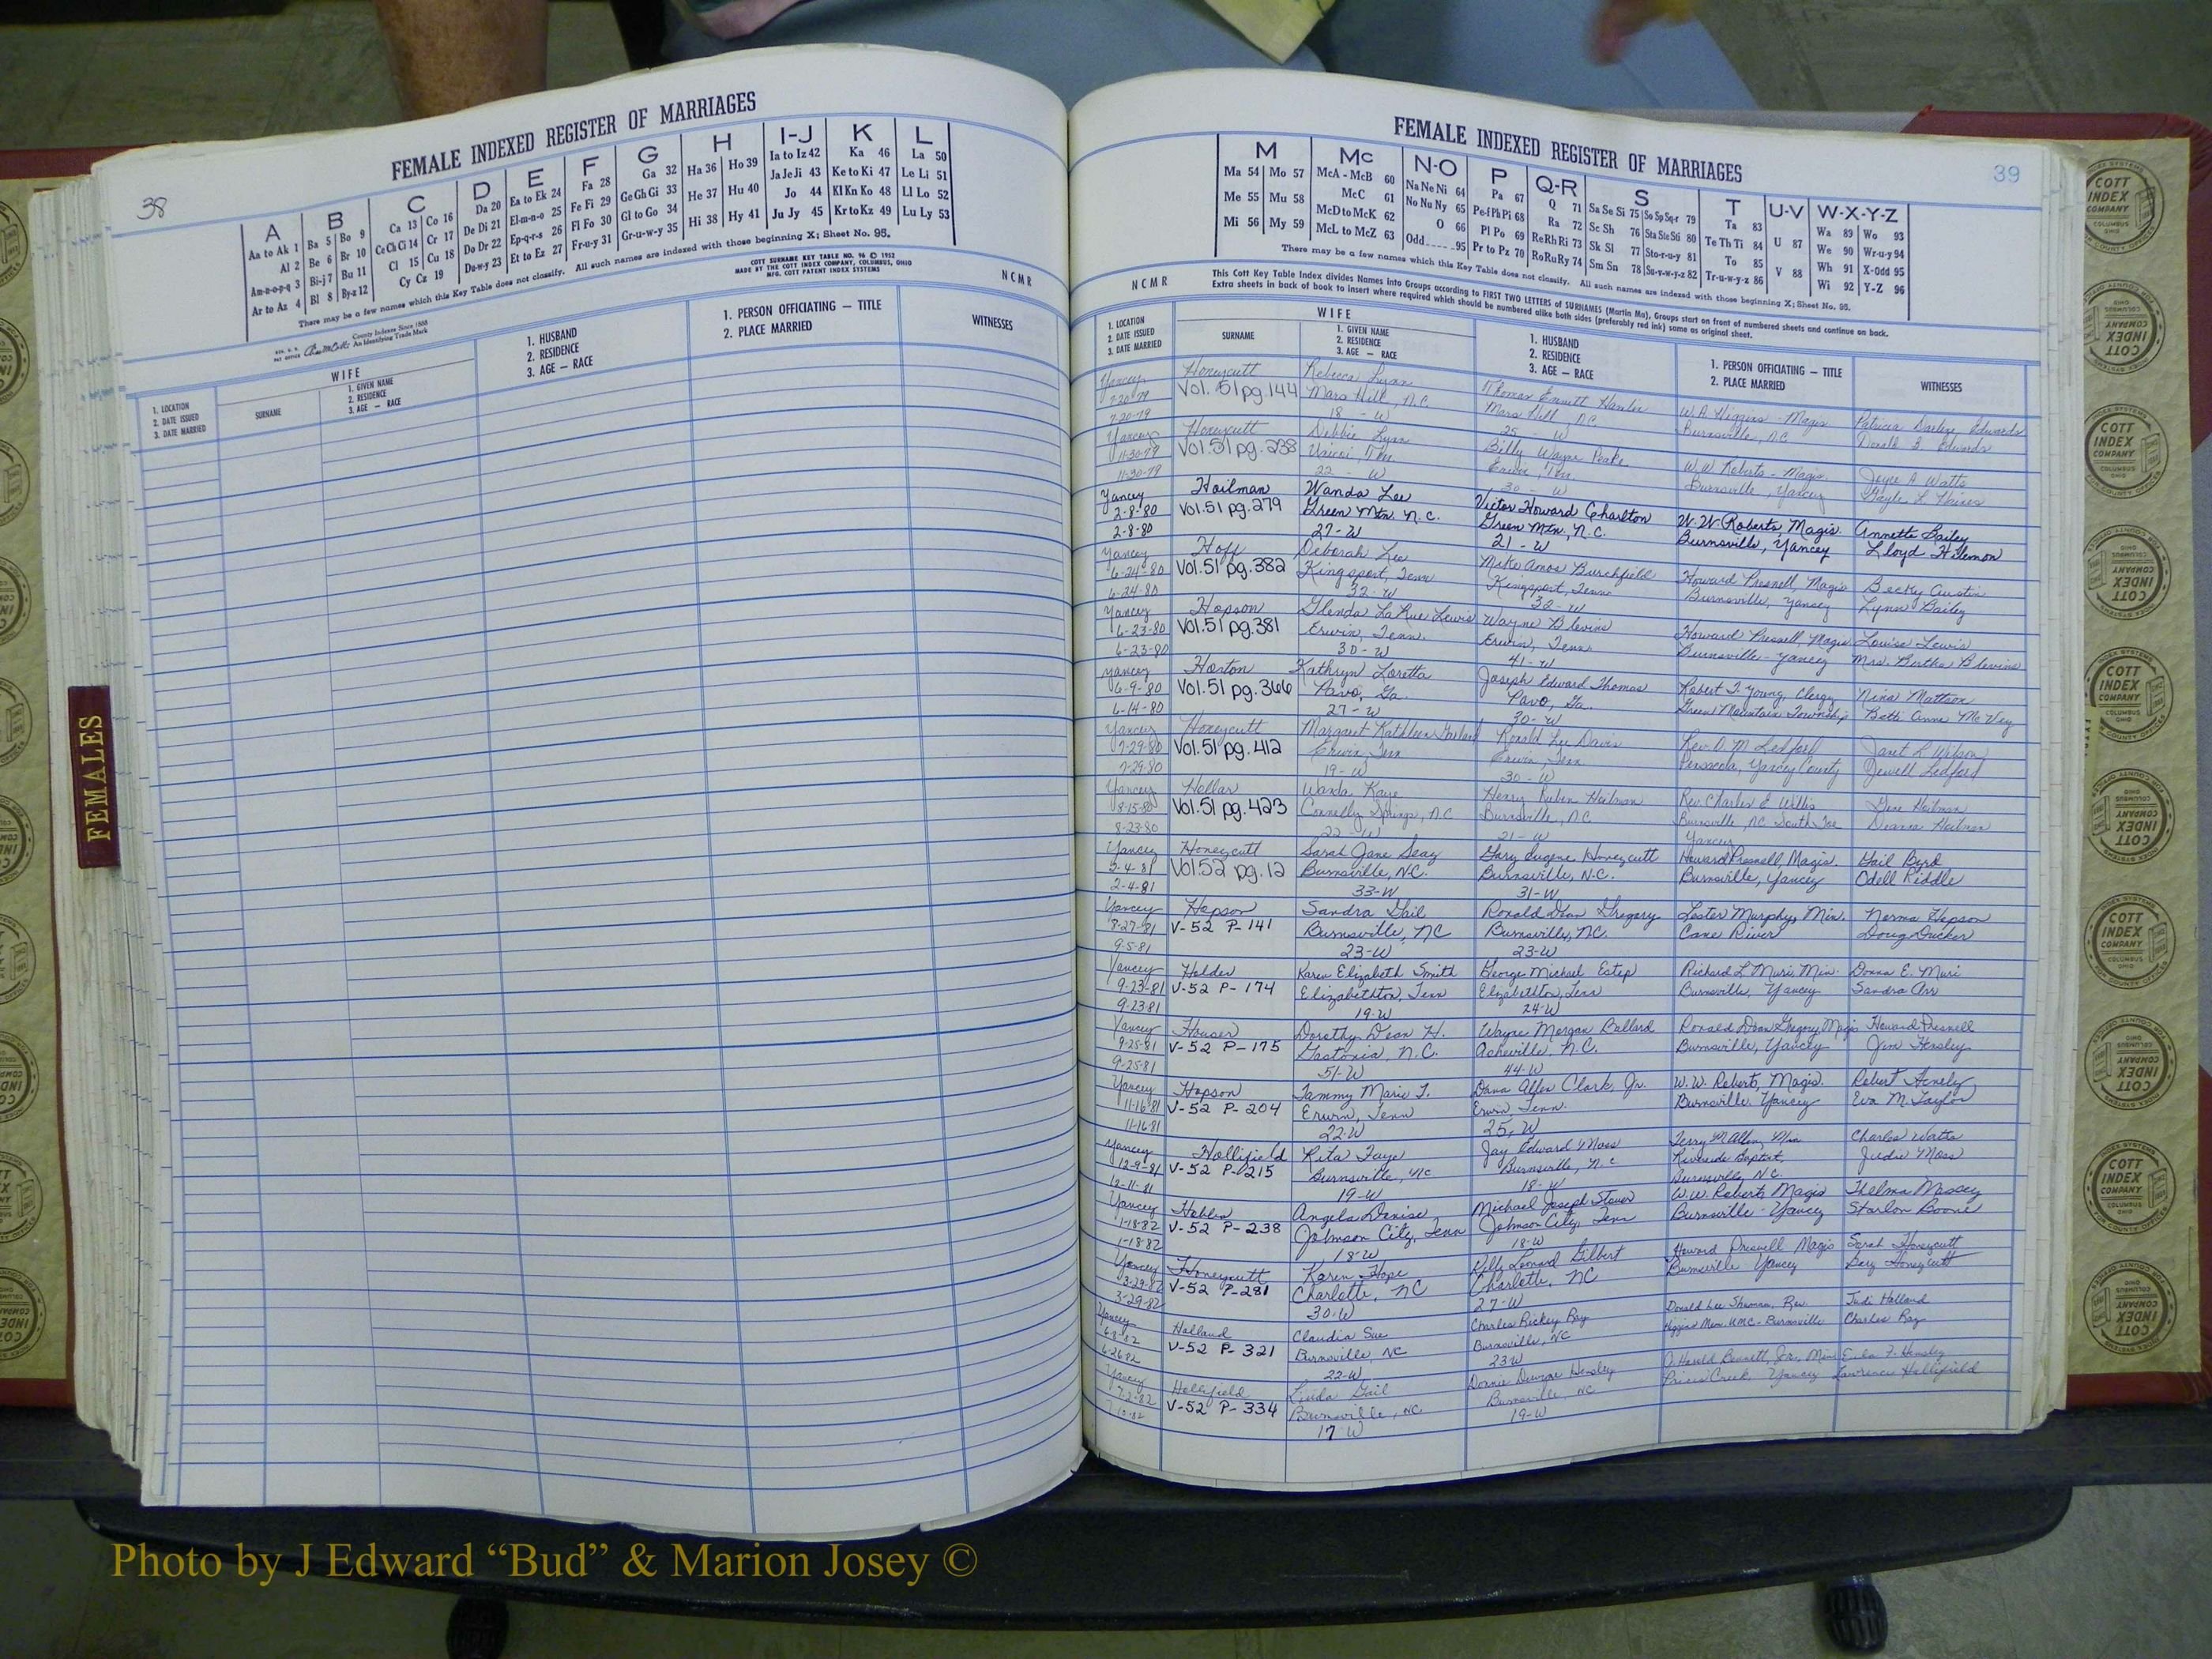 38
FEMALE INDEXED REGISTER OF MARRIAGES
A
Aa to Ak 1
Al 2
Am-n-o-p-q 3
Ar to Az 4
B
Ba 5 Bo 9
Be 6 Br 10
Bi-j 7 Bu 11
Bl 8 By-z 12
C
Ca 13 Co 16
Ce Ch Ci 14 Cr 17
Cl 15 Cu 18
Cy Cz 19
D
Da 20
De Di 21
Do Dr 22
Du-w-y 23
E
Ea to Ek 24
El-m-n-o 25
Ep-q-r-s 26
Et to Ez 27
F
Fa 28
Fe Fi 29
Fl Fo 30
Fr-u-y 31
G
Ga 32
Ge Gh Gi 33
Gl to Go 34
Gr-u-w-y 35
H
Ha 36 Ho 39
He 37 Hu 40
Hi 38 Hy 41
I-J
Ia to Iz 42
Ja Je Ji 43
Jo 44
Ju Jy 45
K
Ka 46
Ke to Ki 47
Kl Kn Ko 48
Kr to Kz 49
L
La 50
Le Li 51
Ll Lo 52
Lu Ly 53
There may be a few names which this Key Table does not classify. All such names are indexed with those beginning X; Sheet No. 95.
County Indexes Since 1888
An Identifying Trade Mark
COTT SURNAME KEY TABLE NO. 96 © 1952
MADE BY THE COTT INDEX COMPANY, COLUMBUS, OHIO
MFG. COTT PATENT INDEX SYSTEMS
NCMR
1. LOCATION
2. DATE ISSUED
3. DATE MARRIED
WIFE
SURNAME
1. GIVEN NAME
2. RESIDENCE
3. AGE — RACE
1. HUSBAND
2. RESIDENCE
3. AGE — RACE
1. PERSON OFFICIATING — TITLE
2. PLACE MARRIED
WITNESSES
FEMALES
FEMALE INDEXED REGISTER OF MARRIAGES
39
M
Ma 54 Mo 57
Me 55 Mu 58
Mi 56 My 59
Mc
McA - McB 60
McC 61
McD to McK 62
McL to McZ 63
N-O
Na Ne Ni 64
No Nu Ny 65
O 66
Odd 95
P
Pa 67
Pe-f Ph Pi 68
Pl Po 69
Pr to Pz 70
Q-R
Q 71
Ra 72
Re Rh Ri 73
Ro Ru Ry 74
S
Sa Se Si 75 So Sp Sq-r 79
Sc Sh 76 Sta Ste Sti 80
Sk Sl 77 Sto-r-u-y 81
Sm Sn 78 Su-v-w-y-z 82
T
Ta 83
Te Th Ti 84
To 85
Tr-u-w-y-z 86
U-V
U 87
V 88
W-X-Y-Z
Wa 89 Wo 93
We 90 Wr-u-y 94
Wh 91 X-Odd 95
Wi 92 Y-Z 96
There may be a few names which this Key Table does not classify. All such names are indexed with those beginning X; Sheet No. 95.
NCMR
This Cott Key Table Index divides Names into Groups according to FIRST TWO LETTERS of SURNAMES (Martin Ma). Groups start on front of numbered sheets and continue on back.
Extra sheets in back of book to insert where required which should be numbered alike both sides (preferably red ink) same as original sheet.
1. LOCATION
2. DATE ISSUED
3. DATE MARRIED
WIFE
SURNAME
1. GIVEN NAME
2. RESIDENCE
3. AGE — RACE
1. HUSBAND
2. RESIDENCE
3. AGE — RACE
1. PERSON OFFICIATING — TITLE
2. PLACE MARRIED
WITNESSES
Yancey Honeycutt Rebecca Lynn Thomas Emmett Hamlin W.A. Higgins - Magis Patricia Darlene Edwards
7-20-79 Vol. 51 pg. 144 Mars Hill, N.C. Mars Hill, N.C. Burnsville, N.C. Donald B. Edwards
7-20-79 18 - W 25 - W
Yancey Honeycutt Debbie Lynn Billy Wayne Peake W.W. Roberts - Magis. Joyce A Watts
11-30-79 Vol. 51 pg. 238 Unicoi, Tenn. Erwin, Tenn. Burnsville, Yancey Gayle L
11-30-79 22 - W 30 - W
Yancey Hoilman Wanda Lee Victor Howard Charlton W.W. Roberts, Magis. Annette Bailey
2-8-80 Vol. 51 pg. 279 Green Mtn. N.C. Green Mtn., N.C. Burnsville, Yancey Lloyd Hilemon
2-8-80 27-W 21-W
Yancey Hoff Deborah Lee Mike Amos Burchfield Howard Presnell, Magis Becky Austin
6-24-80 Vol. 51 pg. 382 Kingsport, Tenn Kingsport, Tenn Burnsville, Yancey Lynn Bailey
6-24-80 32-W 32-W
Yancey Hopson Glenda LaRue Lewis Wayne Blevins Howard Presnell, Magis Louise Lewis
6-23-80 Vol. 51 pg. 381 Erwin, Tenn. Erwin, Tenn Burnsville - Yancey Mrs. Bertha Blevins
6-23-80 30-W 41-W
Yancey Horton Kathryn Loretta Joseph Edward Thomas Robert T. Young, Clergy Nina Mattson
6-9-80 Vol. 51 pg. 366 Pavo, Ga. Pavo, Ga. Green Mountain Township Beth Anne McVey
6-14-80 27-W 30-W
Yancey Honeycutt Margaret Kathleen Garland Ronald Lee Davis Rev. O.M. Ledford Janet L Wilson
7-29-80 Vol. 51 pg. 412 Erwin, Tenn Erwin, Tenn. Pensacola, Yancey County Jewell Ledford
7-29-80 19-W 30-W
Yancey Hollar Wanda Kaye Henry Ruben Hoilman Rev. Charles E Willis Gene Hoilman
8-15-80 Vol. 51 pg. 423 Connelly Springs, N.C Burnsville, N.C Burnsville, NC South Toe Deanna Hoilman
8-23-80 22 W 21-W Yancey
Yancey Honeycutt Sarah Jane Seay Gary Eugene Honeycutt Howard Presnell, Magis. Gail Byrd
2-4-81 Vol. 52 pg. 12 Burnsville, N.C. Burnsville, N.C. Burnsville, Yancey Odell Riddle
2-4-81 33-W 31-W
Yancey Hopson Sandra Gail Ronald Dean Gregory Lester Murphy, Min. Norma Hopson
8-27-81 V-52 P-141 Burnsville, NC Burnsville, NC. Cane River Doug Ducker
9-5-81 23-W 23-W
Yancey Holder Karen Elizabeth Smith George Michael Estep Richard L Muri, Min. Donna E. Muri
9-23-81 V-52 P-174 Elizabethton, Tenn Elizabethton, Tenn Burnsville, Yancey Sandra Orr
9-23-81 19-W 24-W
Yancey Houser Dorothy Dean H. Wayne Morgan Ballard Ronald Dean Gregory, Magis Howard Presnell
9-25-81 V-52 P-175 Gastonia, N.C. Asheville, N.C. Burnsville, Yancey Jim Hensley
9-25-81 51-W 44-W
Yancey Hopson Tammy Marie T. Dana Allen Clark, Jr. W.W. Roberts, Magis. Robert
11-16-81 V-52 P-204 Erwin, Tenn Erwin, Tenn. Burnsville, Yancey Eva M. Taylor
11-16-81 22-W 25, W
Yancey Hollifield Rita Faye Jay Edward Moss Terry M Allen, Min Charles Watts
12-9-81 V-52 P-215 Burnsville, NC Burnsville, N.C Riverside Baptist, Judie Moss
12-11-81 19-W 18-W Burnsville, N.C.
Yancey Angela Denise Michael Joseph Stover W.W. Roberts Magis Thelma Massey
1-18-82 V-52 P-238 Johnson City, Tenn Johnson City, Tenn Burnsville - Yancey Starlon Boone
1-18-82 18-W 18-W
Yancey Honeycutt Karen Hope Leonard Gilbert Howard Presnell Magis Sarah Honeycutt
3-29-82 V-52 P-281 Charlotte, NC Charlotte, NC Burnsville Yancey Honeycutt
3-29-82 30-W 27-W
Yancey Holland Claudia Sue Charles Rickey Ray Donald Lee Rev. Judi Holland
6-8-82 V-52 P-321 Burnsville, NC Burnsville, NC Higgins Mem. UMC - Burnsville Charles Ray
6-26-82 22-W 23-W
Yancey Hollifield Linda Gail Donnie Dwayne Hensley O. Harold Bennett, Jr., Min Eula F. Hensley
7-2-82 V-52 P-334 Burnsville, NC Burnsville, NC Prices Creek, Yancey Lawrence Hollifield
17 W 19-W
COTT
INDEX
COMPANY
COLUMBUS
OHIO
Photo by J Edward “Bud” & Marion Josey ©